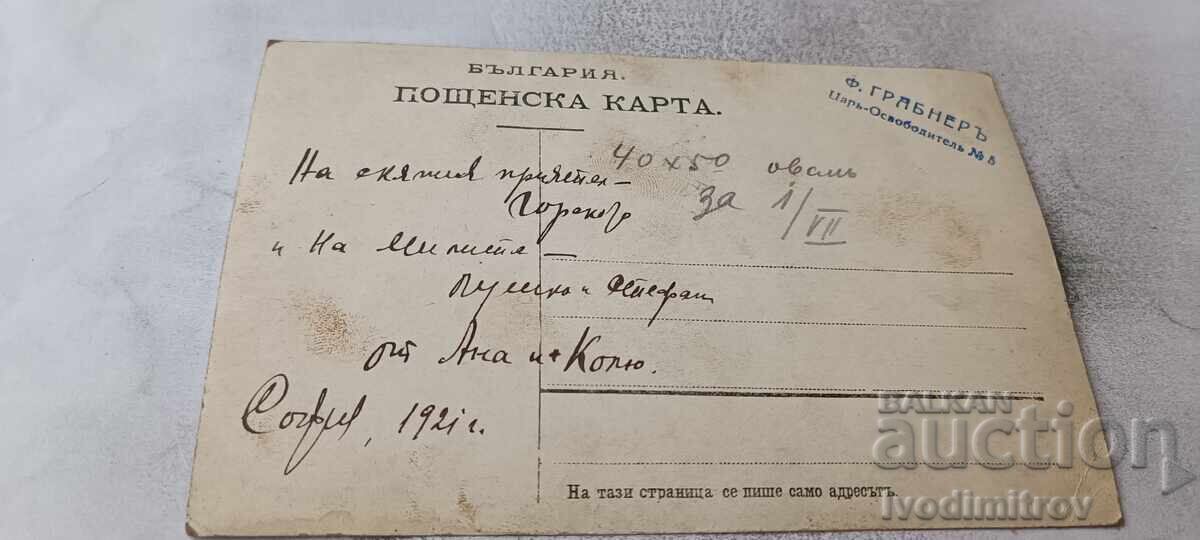 БЪЛГАРИЯ.
ПОЩЕНСКА КАРТА.
Ф. ГРАБНЕРЪ
Царь-Освободитель № 5
40 x 50 овалъ
за 1/VII
На скъпия приятел –
и На Милистя –
и Стефан
от Ана и Колю.
София, 1921 г.
На тази страница се пише само адресътъ.
BALKAN
auction
ivodimitrov